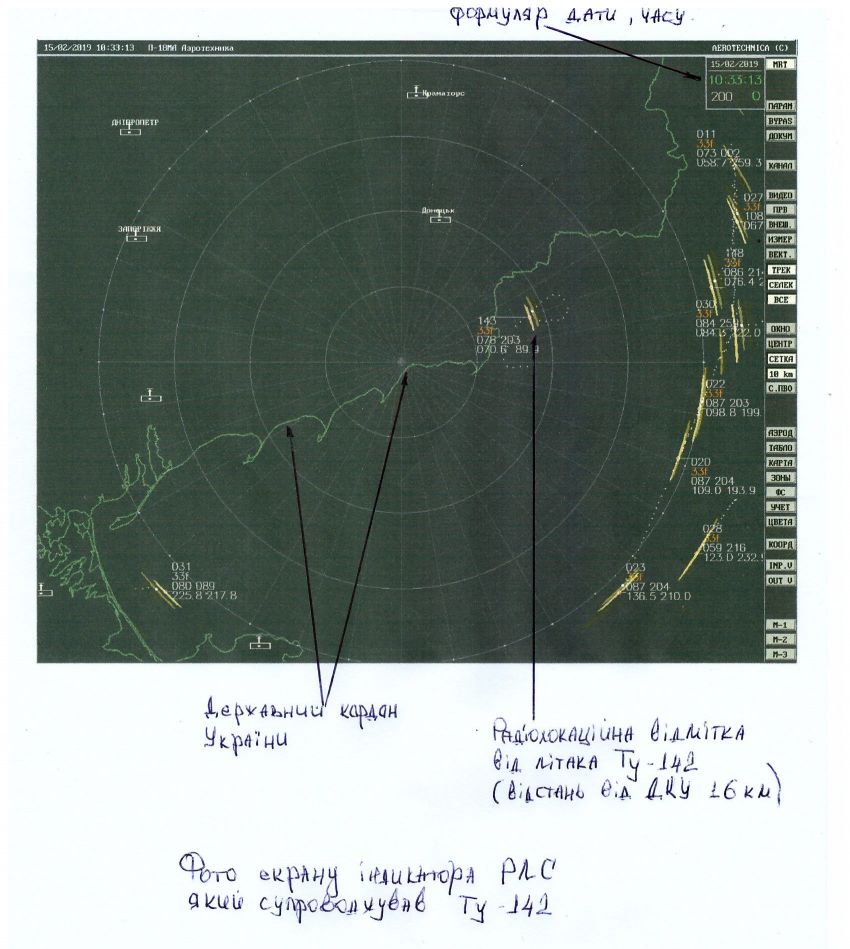 формуляр дати, часу
15/02/2019 10:33:13 П-18МА Аэротехника
AEROTECHNICA (C)
15/02/2019
10:33:13
200 0
MRT
ПАРАМ
BYPAS
ДОКУМ
КАНАЛ
ВИДЕО
ПРВ
ВНЕШ.
ИЗМЕР
ВЕКТ.
ТРЕК
СЕЛЕК
ВСЕ
ОКНО
ЦЕНТР
СЕТКА
10 km
С.ПВО
АЭРОД
ТАБЛО
КАРТА
ЗОНЫ
ФС
УЧЕТ
ЦВЕТА
КООРД
INP.V
OUT V
М-1
М-2
М-3
Краматорс
ДНІПРОПЕТР
Донецьк
ЗАПОРІЖЖЯ
011
33f
073 002
027
33f
108
067
148
33f
086
076.4
030
33f
084 259
143
33f
078 203
070.6 89.9
022
33f
087 203
098.8 199.
020
33f
087 204
109.0 193.9
028
33f
059 216
123.0 232.
023
33f
087 204
136.5 210.0
031
33f
080 089
225.8 217.8
Державний кордон
України
Радіолокаційна відмітка
від літака Ту-142
(відстань від ДКУ 16 км)
Фото екрану індикатора РЛС
який супроводжував Ту-142